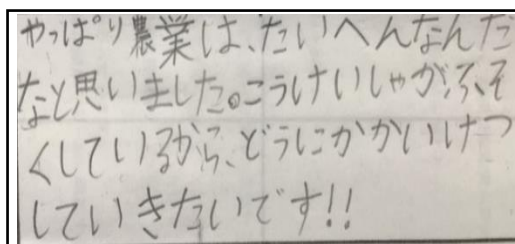 やっぱり農業は、たいへんなんだ
なと思いました。こうけいしゃがふそ
くしているから、どうにかかいけつ
していきたいです!!